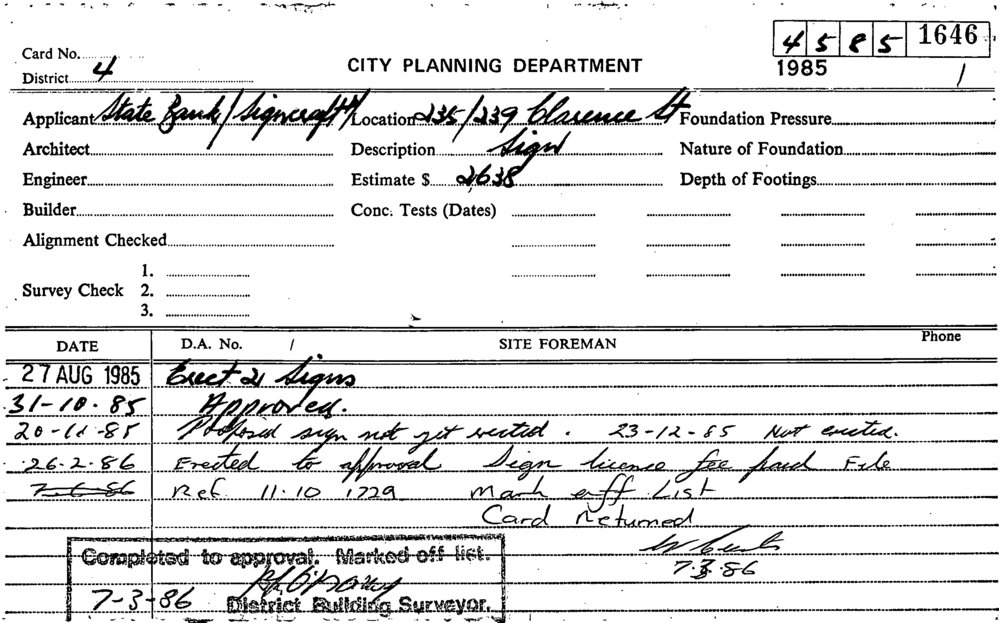 4 5 8 5 1646
Card No.
1985 1
District 4
CITY PLANNING DEPARTMENT
Applicant State Bank/Signcraft Location 235/239 Clarence St Foundation Pressure
Architect Description Sign Nature of Foundation
Engineer Estimate $ 2638 Depth of Footings
Builder Conc. Tests (Dates)
Alignment Checked
1.
Survey Check 2.
3.
DATE D.A. No. / SITE FOREMAN Phone
27 AUG 1985 Erect 21 Signs
31-10-85 Approved.
20-11-85 Proposed sign not yet erected. 23-12-85 Not erected.
26.2.86 Erected to approval Sign licence fee paid File
7-6-86 Ref. 11.10 1729 Mark off List
Card Returned
7.3.86
Completed to approval. Marked off list.
7-3-86 District Building Surveyor.